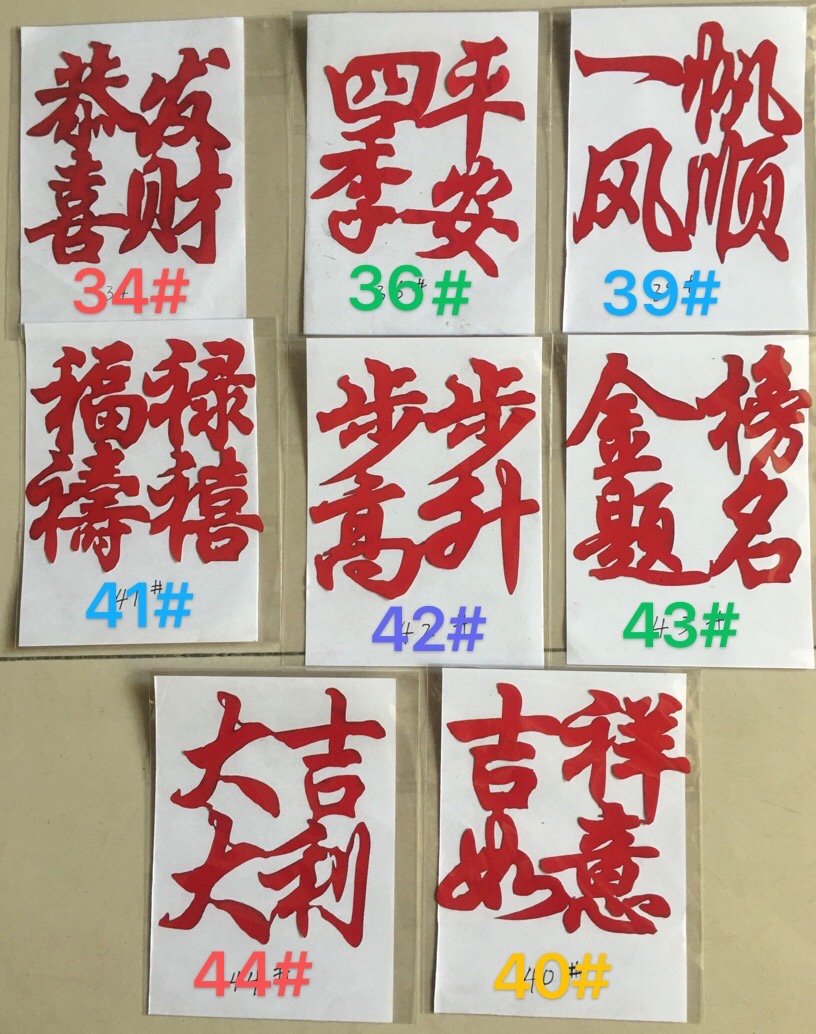 恭喜
发财
34#
四季
平安
36#
一帆
风顺
39#
福禄
禱禧
41#
步步
高升
42#
金榜
题名
43#
大吉
大利
44#
吉祥
如意
40#